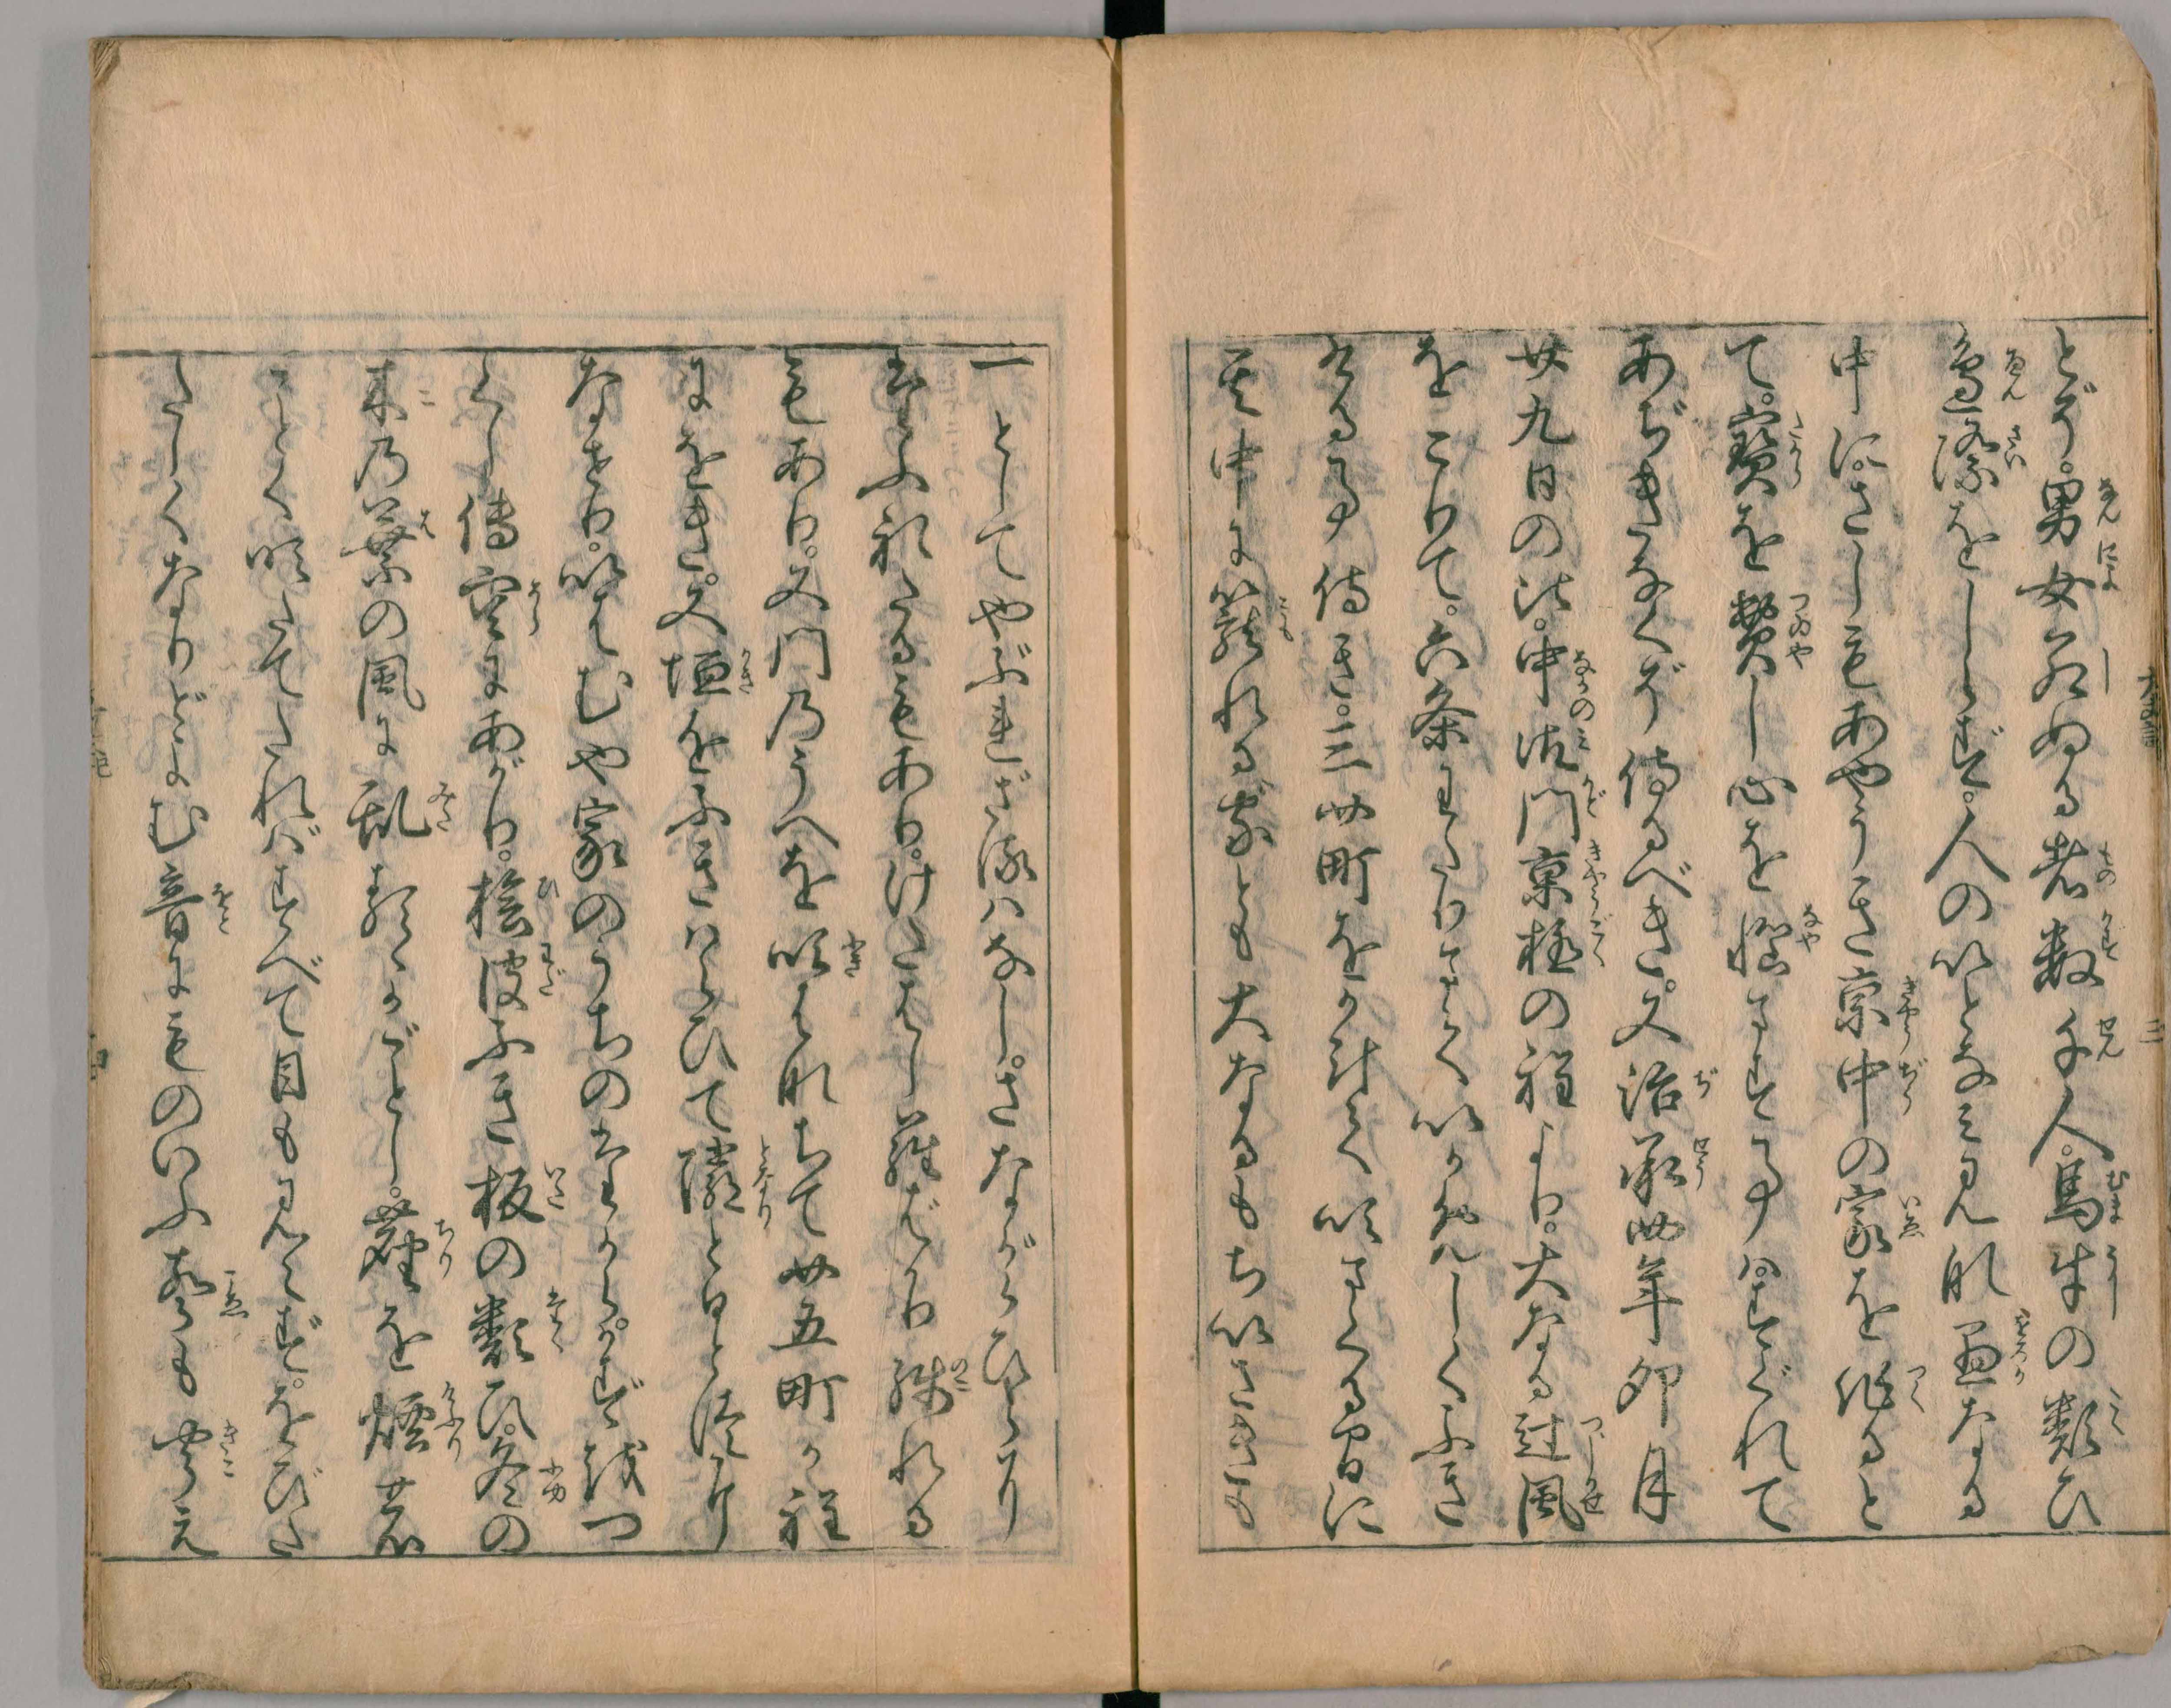 とぞ。男女死ぬる者数千人。馬牛の類ひ
邊際をしらず。人のいとなみみな愚なる
中に。さしもあやうき京中の家を作ると
て。寳を費し心を悩ます事ハ。すぐれて
あぢきなくぞ侍るべき。又治承四年卯月
廿九日の比。中御門京極の程より。大なる辻風
をこりて。六条わたりまで。いかめしくふき
ける事侍き。三四町をかけて吹まくる間に
其中に籠れる家ども大なるもちいさきも
一としてやぶれざるハなし。さながらひらに
たふれたるもあり。けたはしら計り残れる
もあり。又門のうへを吹はなちて四五町が程
にをき。又垣をふきはらひて隣と一つに
なせり。いはむや家のうちのたから。かず をつ
くし空にあがり。檜皮ふき板の類ひ。冬の
木の葉の風に乱るゝがごとし。塵を煙の
ごとく吹たてたれバすべて目も見えず。をびた
たしくなりどよむ音にものいふ聲も聞え